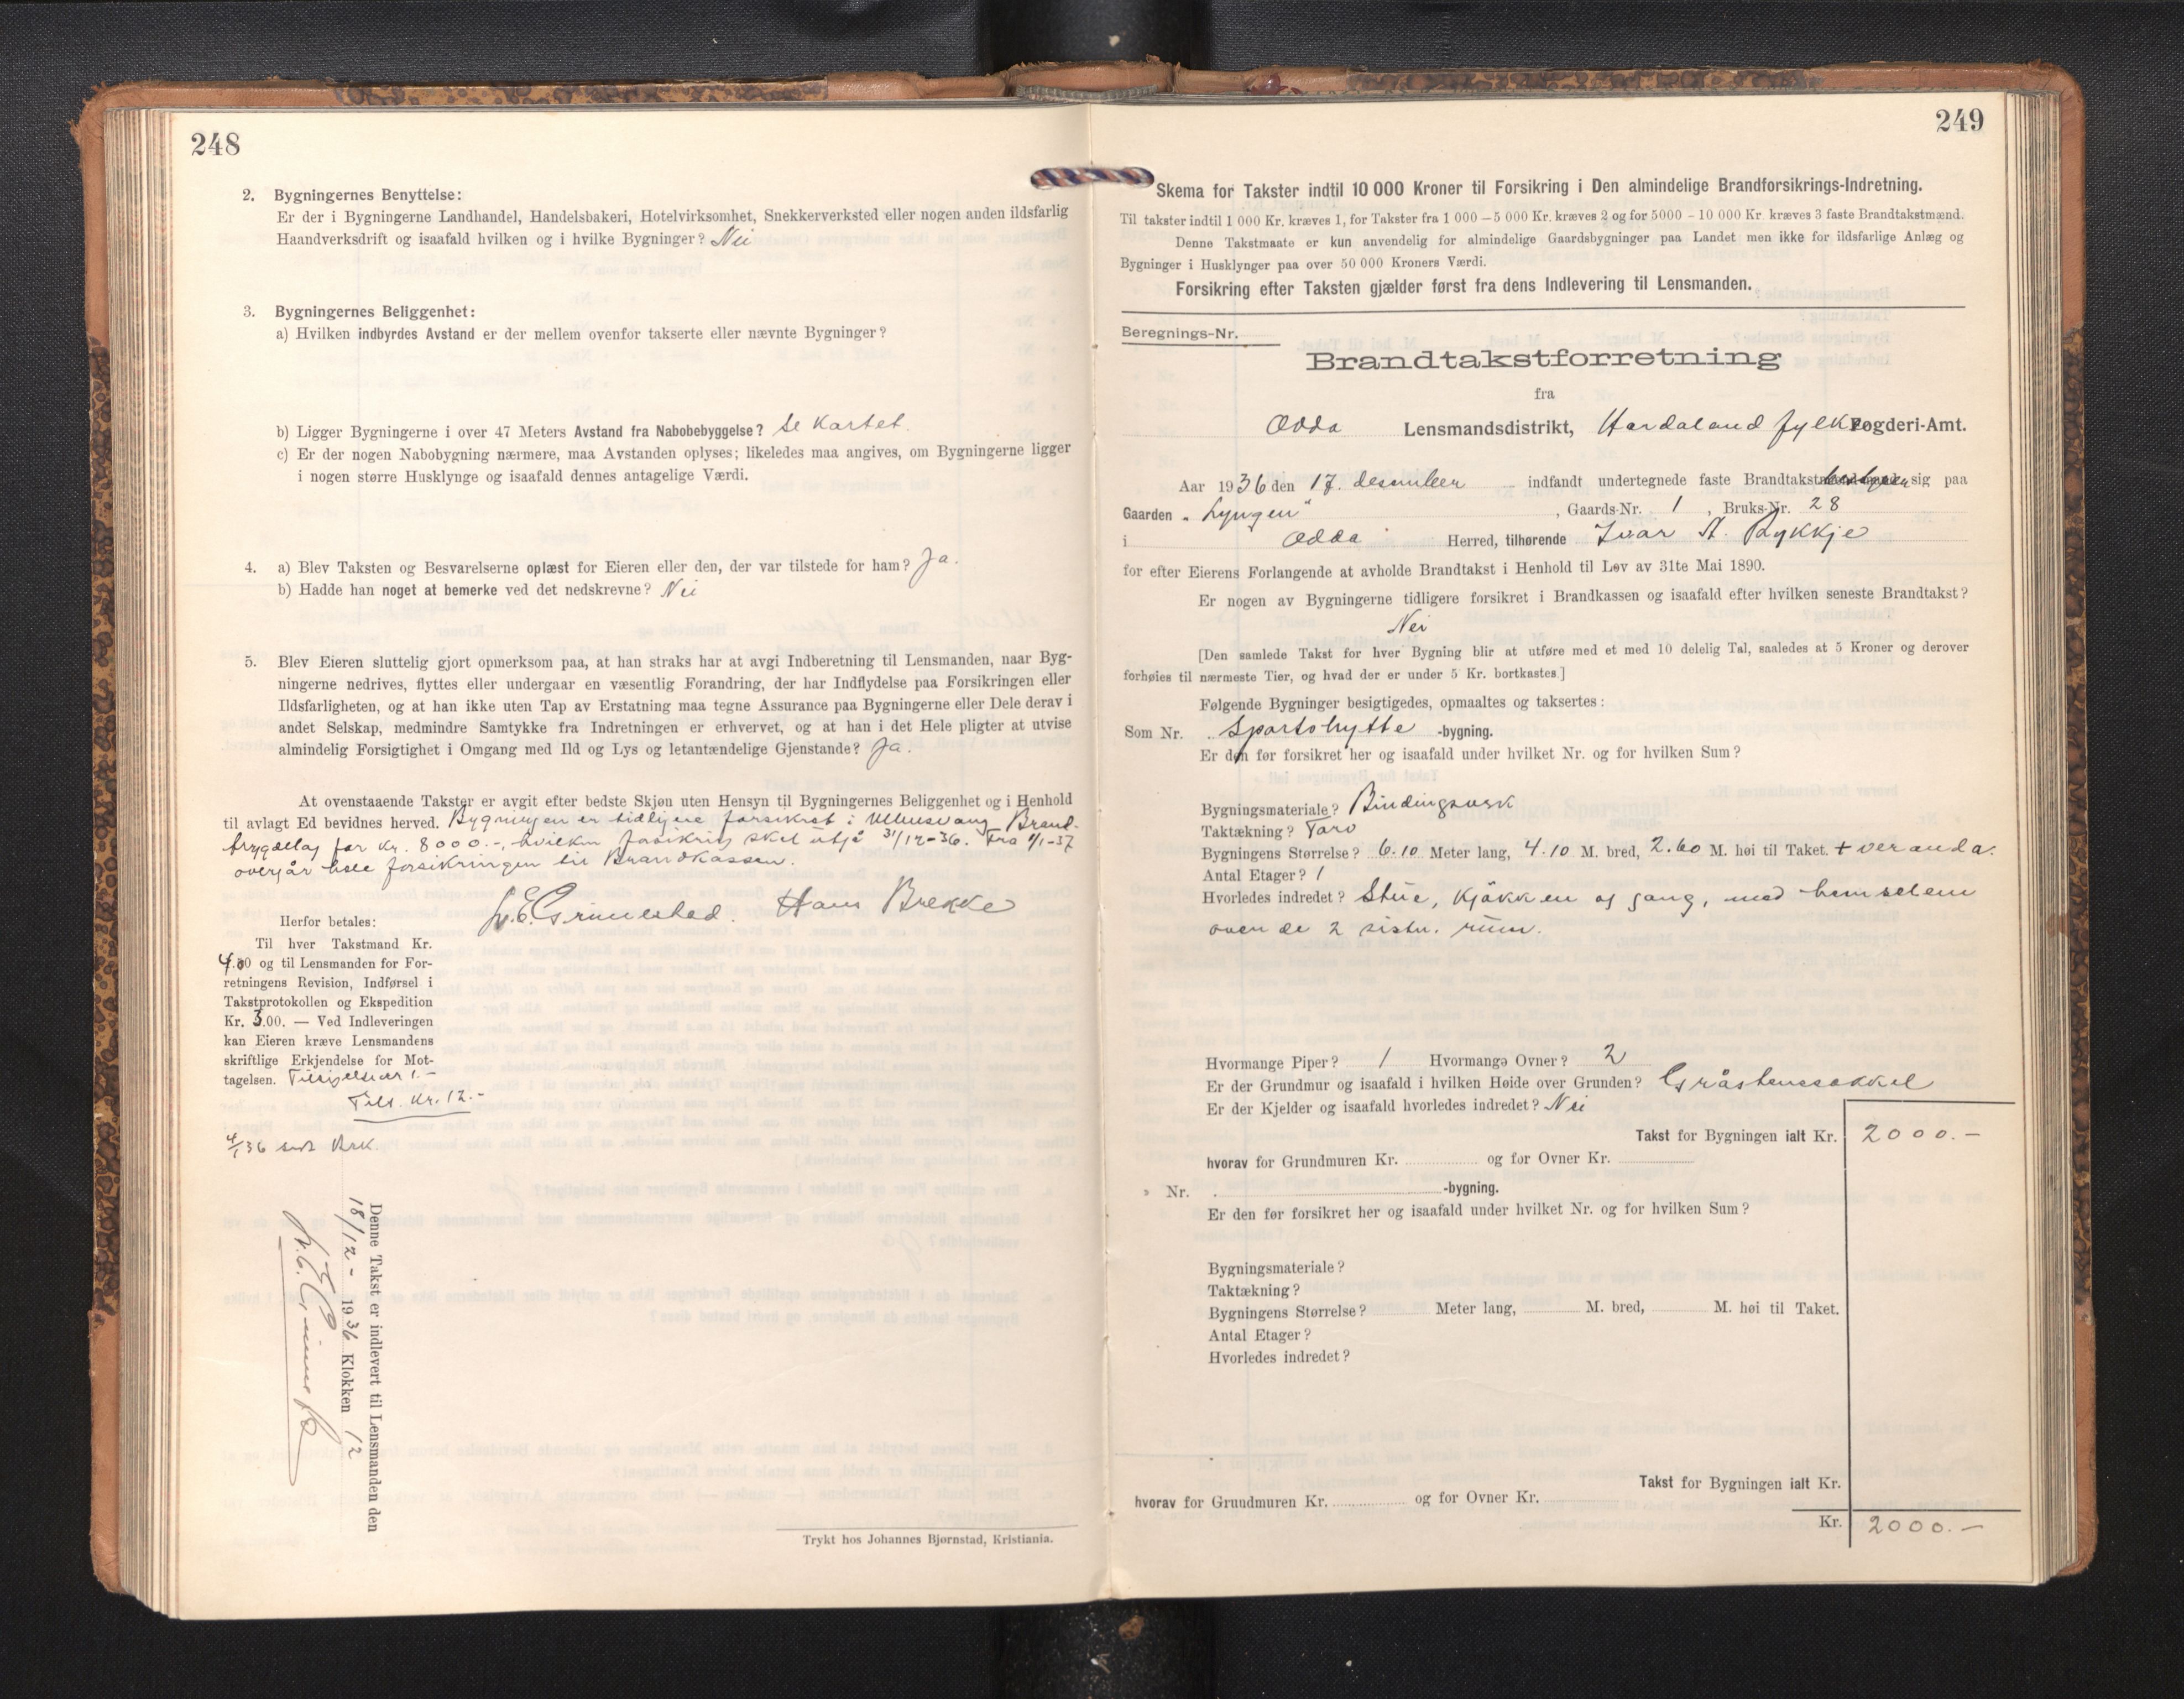 248
2. Bygningernes Benyttelse:
Er der i Bygningerne Landhandel, Handelsbakeri, Hotelvirksomhet, Snekkerverksted eller nogen anden ildsfarlig
Haandverksdrift og isaafald hvilken og i hvilke Bygninger? Nei
3. Bygningernes Beliggenhet:
a) Hvilken indbyrdes Avstand er der mellem ovenfor takserte eller nævnte Bygninger?
b) Ligger Bygningerne i over 47 Meters Avstand fra Nabobebyggelse? Se kartet.
c) Er der nogen Nabobygning nærmere, maa Avstanden oplyses; likeledes maa angives, om Bygningerne ligger
i nogen større Husklynge og isaafald dennes antagelige Værdi.
4. a) Blev Taksten og Besvarelserne oplæst for Eieren eller den, der var tilstede for ham? Ja.
b) Hadde han noget at bemerke ved det nedskrevne? Nei
5. Blev Eieren sluttelig gjort opmerksom paa, at han straks har at avgi Indberetning til Lensmanden, naar Byg-
ningerne nedrives, flyttes eller undergaar en væsentlig Forandring, der har Indflydelse paa Forsikringen eller
Ildsfarligheten, og at han ikke uten Tap av Erstatning maa tegne Assurance paa Bygningerne eller Dele derav i
andet Selskap, medmindre Samtykke fra Indretningen er erhvervet, og at han i det Hele pligter at utvise
almindelig Forsigtighet i Omgang med Ild og Lys og letantændelige Gjenstande? Ja.
At ovenstaaende Takster er avgit efter bedste Skjøn uten Hensyn til Bygningernes Beliggenhet og i Henhold
til avlagt Ed bevidnes herved. Bygningen er tidligere forsikret i Ullensvang Brand-
trygdelag for kr. 8000.-, hvilken forsikring skal utgå 31/12-36. Fra 1/1-37
overgår hele forsikringen til Brandkassen.
L. E. Grimestad. Hans Brekke
Herfor betales:
Til hver Takstmand Kr.
4.00 og til Lensmanden for For-
retningens Revision, Indførsel i
Takstprotokollen og Ekspedition
Kr. 3.00. — Ved Indleveringen
kan Eieren kræve Lensmandens
skriftlige Erkjendelse for Mot-
tagelsen. Tilsigelser 1.-
Tils. kr. 12.-
Denne Takst er indlevert til Lensmanden den
18/12 - 1936 Klokken 12
Trykt hos Johannes Bjørnstad, Kristiania.
249
Skema for Takster indtil 10 000 Kroner til Forsikring i Den almindelige Brandforsikrings-Indretning.
Til takster indtil 1 000 Kr. kræves 1, for Takster fra 1 000 – 5 000 Kr. kræves 2 og for 5000 – 10 000 Kr. kræves 3 faste Brandtakstmænd.
Denne Takstmaate er kun anvendelig for almindelige Gaardsbygninger paa Landet men ikke for ildsfarlige Anlæg og
Bygninger i Husklynger paa over 50 000 Kroners Værdi.
Forsikring efter Taksten gjælder først fra dens Indlevering til Lensmanden.
Beregnings-Nr.
Brandtakstforretning
fra
Odda Lensmandsdistrikt, Hordaland fylke Fogderi-Amt.
Aar 1936 den 17. desember indfandt undertegnede faste sig paa
Gaarden „Lyngen“, Gaards-Nr. 1, Bruks-Nr. 28
i Odda Herred, tilhørende Ivar A. Rykkje
for efter Eierens Forlangende at avholde Brandtakst i Henhold til Lov av 31te Mai 1890.
Er nogen av Bygningerne tidligere forsikret i Brandkassen og isaafald efter hvilken seneste Brandtakst?
Nei
[Den samlede Takst for hver Bygning blir at utføre med et med 10 delelig Tal, saaledes at 5 Kroner og derover
forhøies til nærmeste Tier, og hvad der er under 5 Kr. bortkastes.]
Følgende Bygninger besigtigedes, opmaaltes og taksertes:
Som Nr. Sportshytte -bygning.
Er den før forsikret her og isaafald under hvilket Nr. og for hvilken Sum?
Bygningsmateriale? Bindingsverk
Taktækning? Torv
Bygningens Størrelse? 6.10 Meter lang, 4.10 M. bred, 2.60 M. høi til Taket. + veranda.
Antal Etager? 1
Hvorledes indredet? Stue, kjøkken og gang, med hemselem
over de 2 sistn. rum.
Hvormange Piper? 1 Hvormange Ovner? 2
Er der Grundmur og isaafald i hvilken Høide over Grunden? Gråstenssokkel
Er der Kjelder og isaafald hvorledes indredet? Nei
Takst for Bygningen ialt Kr. 2000.-
hvorav for Grundmuren Kr. og for Ovner Kr.
» Nr. -bygning.
Er den før forsikret her og isaafald under hvilket Nr. og for hvilken Sum?
Bygningsmateriale?
Taktækning?
Bygningens Størrelse? Meter lang, M. bred, M. høi til Taket.
Antal Etager?
Hvorledes indredet?
Takst for Bygningen ialt Kr.
hvorav for Grundmuren Kr. og for Ovner Kr.
Kr. 2000.-